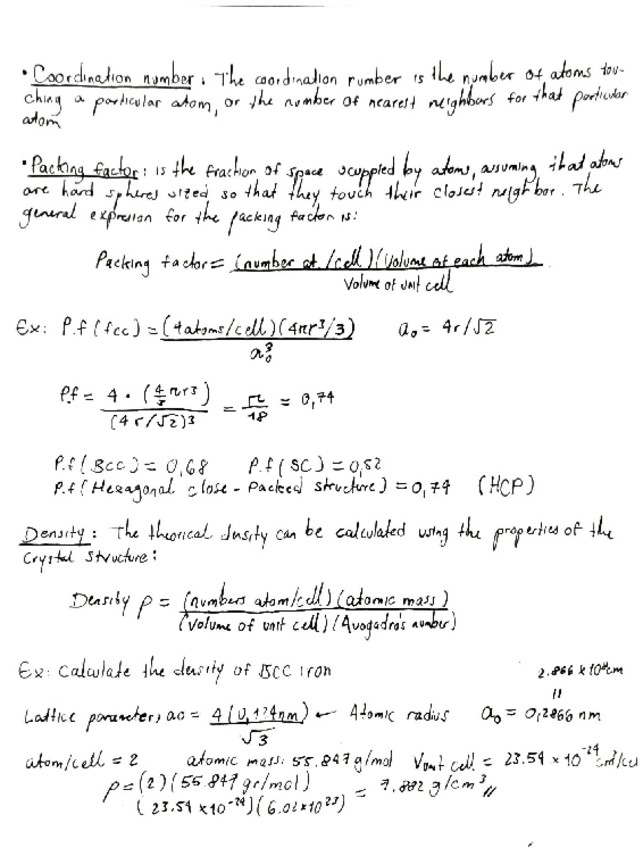 • Coordination number: The coordination number is the number of atoms tou-
ching a particular atom, or the number of nearest neighbors for that particular
atom
• Packing factor: is the fraction of space ocuppled by atoms, assuming that atoms
are hard spheres sized so that they touch their closest neighbor. The
general expresion for the packing factor is:
Packing factor = (number at./cell)(Volume of each atom)
Volume of unit cell
Ex: P.f (fcc) = (4 atoms/cell)(4πr³/3) a₀ = 4r/√2
a₀³
P.f = 4 · (4/3 πr³) = π = 0,74
(4r/√2)³ √18
P.f (BCC) = 0,68 P.f (SC) = 0,52
P.f (Hexagonal close-Packed structure) = 0,74 (HCP)
Density: The theorical density can be calculated using the properties of the
Crystal structure:
Density ρ = (numbers atom/cell)(atomic mass)
(Volume of unit cell)(Avogadro's number)
Ex: Calculate the density of BCC iron
2.866 x 10⁻⁸cm
||
Lattice parameter, a₀ = 4(0,124nm) ← Atomic radius a₀ = 0,2866 nm
√3
atom/cell = 2 atomic mass: 55.847 g/mol Vunit cell = 23.54 x 10⁻²⁴ cm³/cell
ρ = (2)(55.847 gr/mol) = 7.882 g/cm³ //
(23.54 x 10⁻²⁴)(6.02 x 10²³)